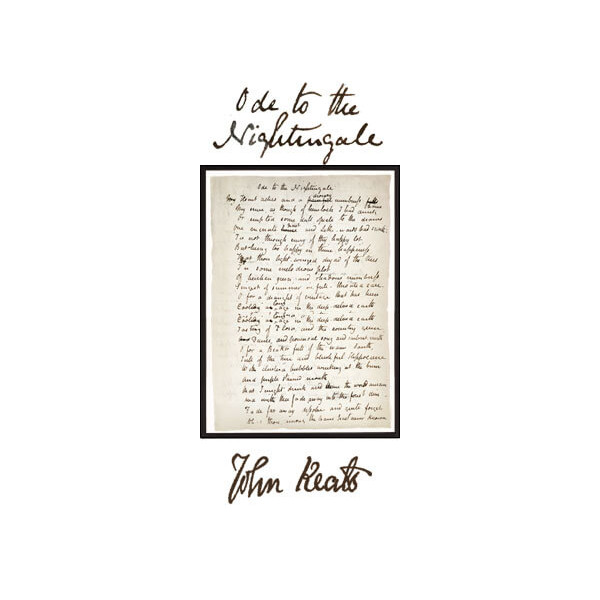 Ode to the
Nightingale
Ode to the Nightingale
My Heart aches and a drowsy numbness
My sense as though of hemlock I had
or emptied some dull opiate to the drains
One minute and Lethe-wards had sunk.
Tis not through envy of thy happy lot
But being too happy in thine happiness
That thou light-winged dryad of the trees
In some melodious plot
Of beechen green and shadows numberless
Singest of summer in full-throated ease.
O for a draught of vintage that has been
Cooling an age in the deep-delved earth
Cooling an age in the deep-delved earth
Tasting of Flora, and the country green
Dance, and provencal song and
O for a Beaker full of the warm South,
Full of the true and blushful Hippocrene
With bubbles winking at the brim
And purple stained mouth
That I might drink and the world unseen
And with thee fade away into the forest dim
Fade far away dissolve and quite forget
thou among the leaves hast never known
John Keats